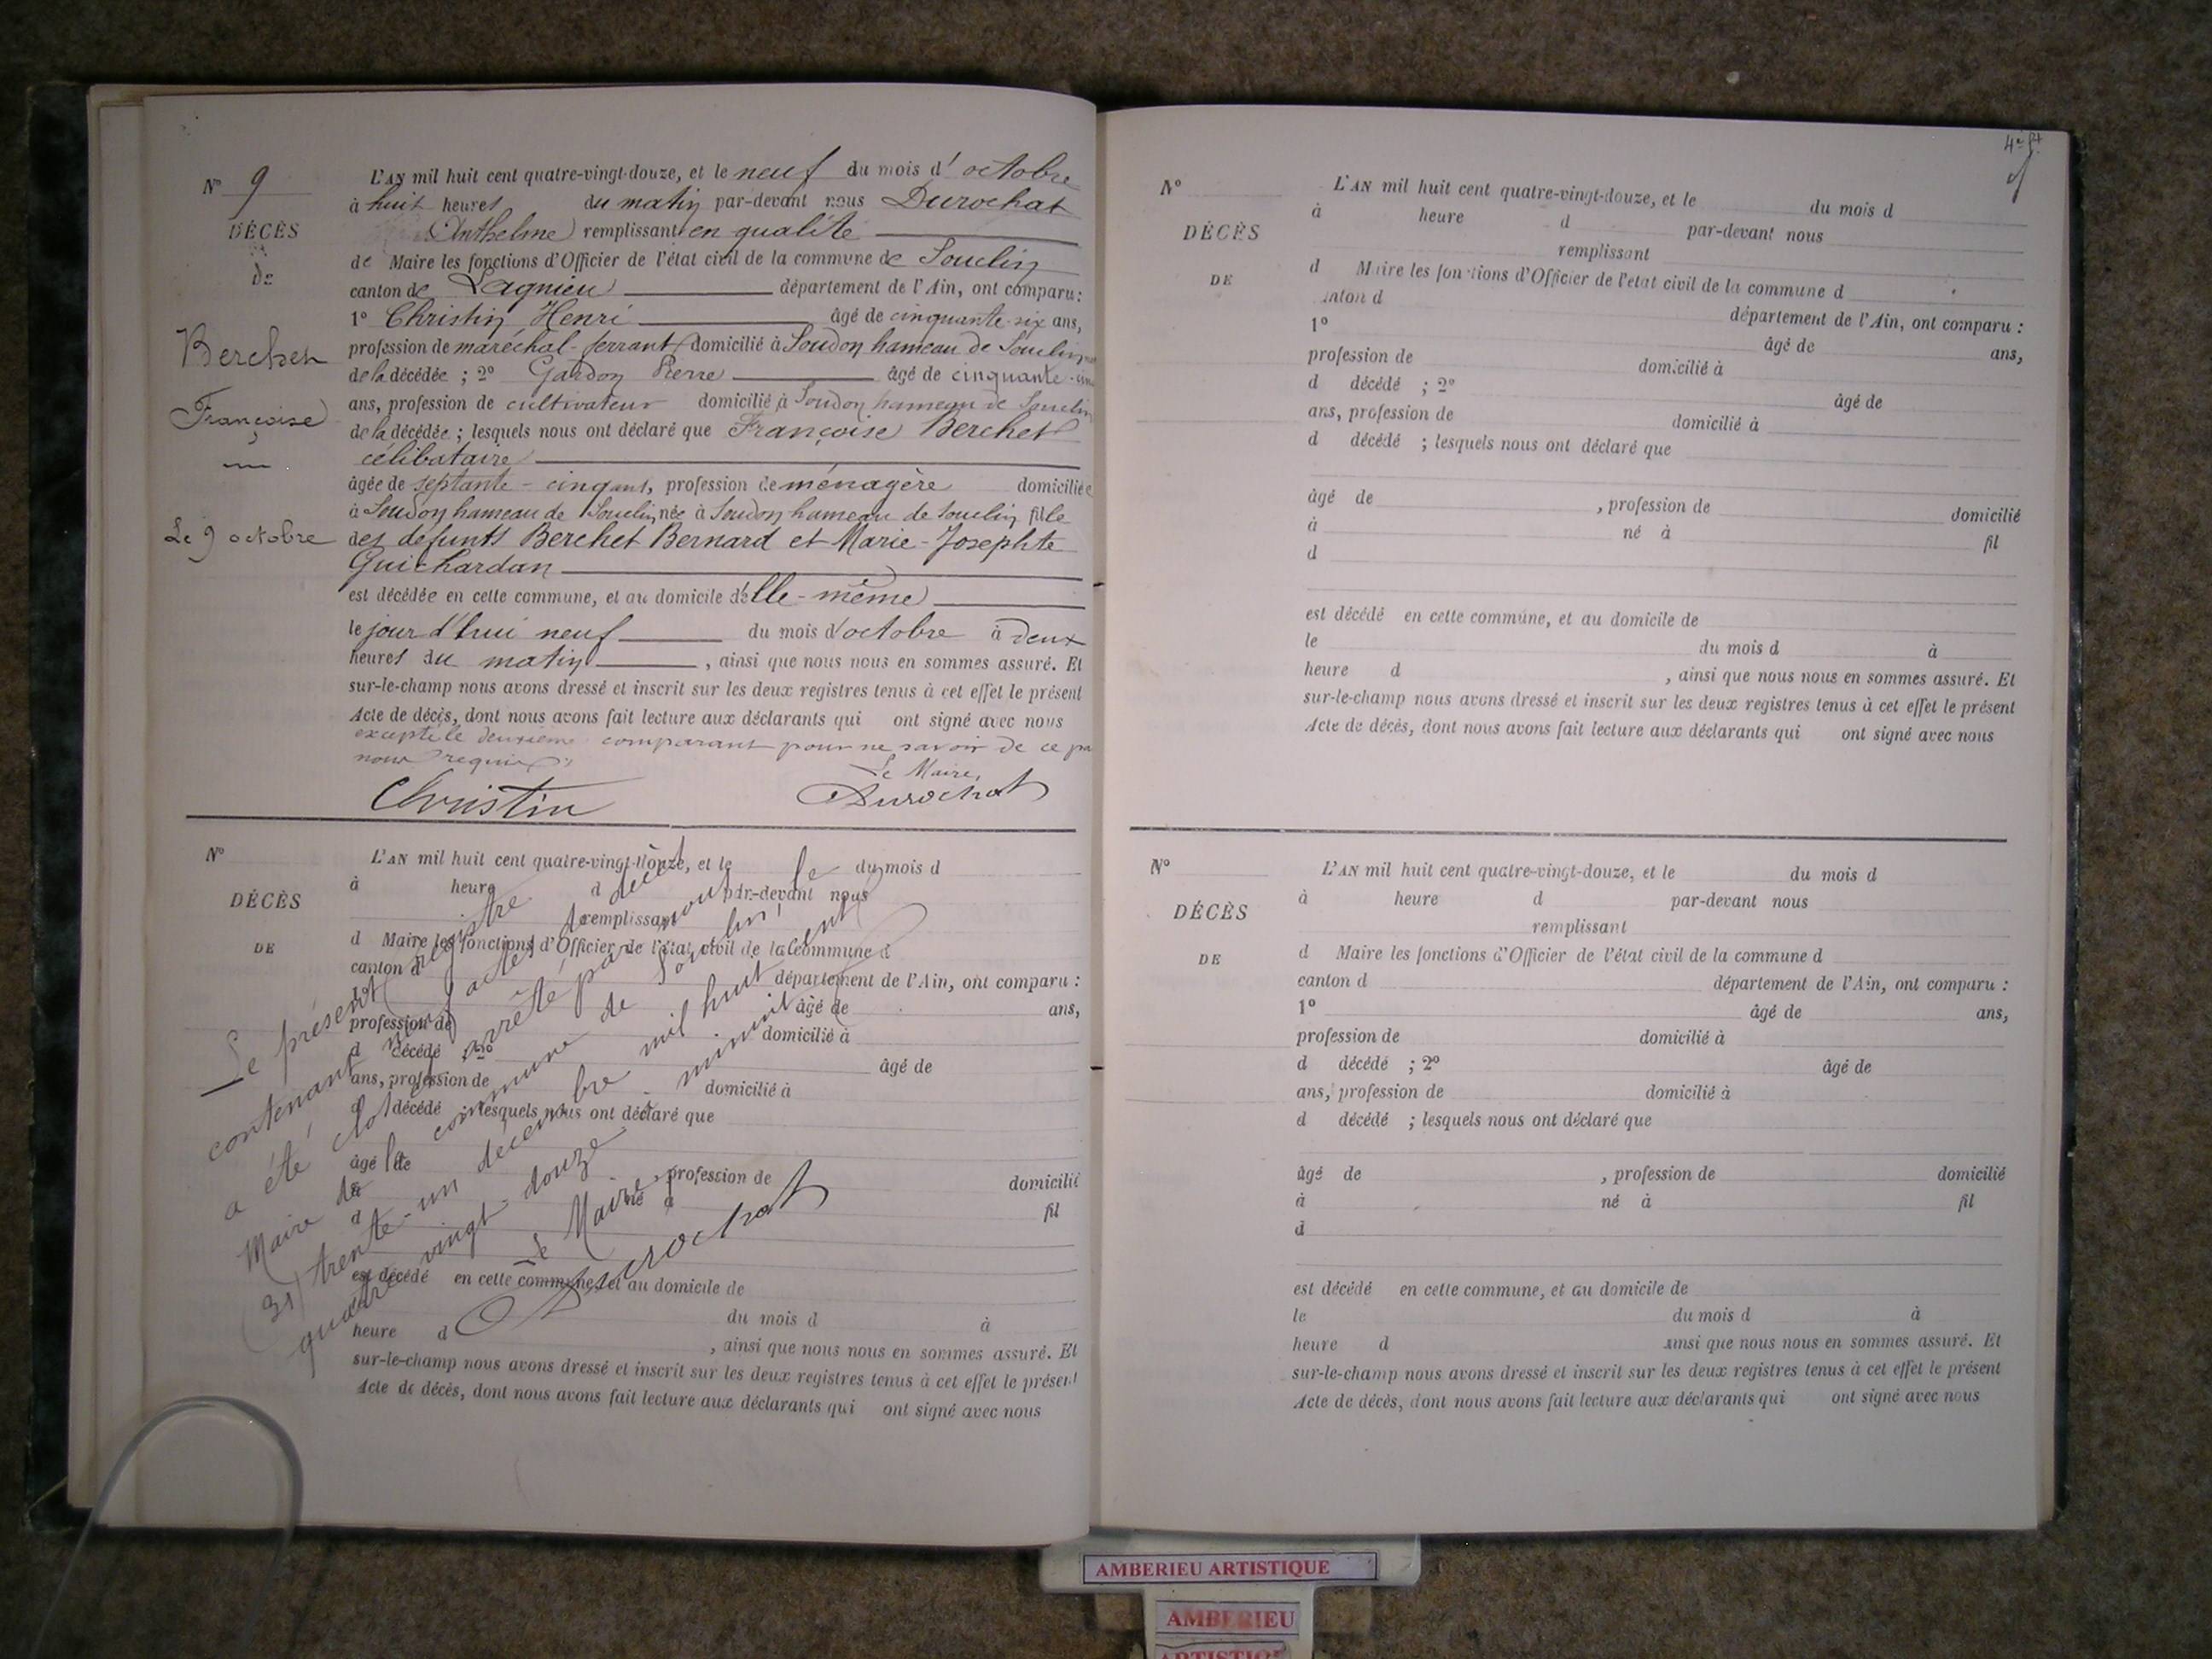 N° 9
DÉCÈS
de
Berchet
Françoise
Le 9 octobre
L'AN mil huit cent quatre-vingt-douze, et le neuf du mois d'octobre
à huit heures du matin par-devant nous Durochat
(Anthelme) remplissant en qualité
de Maire les fonctions d'Officier de l'état civil de la commune de Souclin
canton de Lagnieu département de l'Ain, ont comparu :
1° Christin Henri âgé de cinquante-six ans,
profession de maréchal-ferrant domicilié à Soudon hameau de Souclin
de la décédée ; 2° Gardon Pierre âgé de cinquante-cinq
ans, profession de cultivateur domicilié à Soudon hameau de Souclin
de la décédée ; lesquels nous ont déclaré que Françoise Berchet
célibataire
âgée de septante-cinq ans, profession de ménagère domiciliée
à Soudon hameau de Souclin née à Soudon hameau de Souclin fille
des défunts Berchet Bernard et Marie-Josephte
Guichardan
est décédée en cette commune, et au domicile d'elle-même
le jour d'hui neuf du mois d'octobre à deux
heures du matin , ainsi que nous nous en sommes assuré. Et
sur-le-champ nous avons dressé et inscrit sur les deux registres tenus à cet effet le présent
Acte de décès, dont nous avons fait lecture aux déclarants qui ont signé avec nous
excepté le deuxième comparant pour ne savoir de ce par
nous requis
Le Maire,
Christin Durochat
N°
DÉCÈS
DE
L'AN mil huit cent quatre-vingt-douze, et le du mois d
à heure d par-devant nous
remplissant
d Maire les fonctions d'Officier de l'état civil de la commune d
canton d département de l'Ain, ont comparu :
1° âgé de ans,
profession de domicilié à
d décédé ; 2° âgé de
ans, profession de domicilié à
d décédé ; lesquels nous ont déclaré que
âgé de , profession de domicilié
à né à fil
d
est décédé en cette commune, et au domicile de
du mois d à
heure d , ainsi que nous nous en sommes assuré. Et
sur-le-champ nous avons dressé et inscrit sur les deux registres tenus à cet effet le présent
Acte de décès, dont nous avons fait lecture aux déclarants qui ont signé avec nous
Le présent registre
contenant neuf actes de décès
a été clos et arrêté par nous
Maire de la commune de Souclin, le
(31) trente-un décembre mil huit cent
quatre vingt-douze minuit
Le Maire,
Durochat
N°
DÉCÈS
DE
L'AN mil huit cent quatre-vingt-douze, et le du mois d
à heure d par-devant nous
remplissant
d Maire les fonctions d'Officier de l'état civil de la commune d
canton d département de l'Ain, ont comparu :
1° âgé de ans,
profession de domicilié à
d décédé ; 2° âgé de
ans, profession de domicilié à
d décédé ; lesquels nous ont déclaré que
âgé de , profession de domicilié
à né à fil
d
est décédé en cette commune, et au domicile de
le du mois d à
heure d , ainsi que nous nous en sommes assuré. Et
sur-le-champ nous avons dressé et inscrit sur les deux registres tenus à cet effet le présent
Acte de décès, dont nous avons fait lecture aux déclarants qui ont signé avec nous
N°
DÉCÈS
DE
L'AN mil huit cent quatre-vingt-douze, et le du mois d
à heure d par-devant nous
remplissant
d Maire les fonctions d'Officier de l'état civil de la commune d
canton d département de l'Ain, ont comparu :
1° âgé de ans,
profession de domicilié à
d décédé ; 2° âgé de
ans, profession de domicilié à
d décédé ; lesquels nous ont déclaré que
âgé de , profession de domicilié
à né à fil
d
est décédé en cette commune, et au domicile de
le du mois d à
heure d ainsi que nous nous en sommes assuré. Et
sur-le-champ nous avons dressé et inscrit sur les deux registres tenus à cet effet le présent
Acte de décès, dont nous avons fait lecture aux déclarants qui ont signé avec nous
AMBERIEU ARTISTIQUE
AMBERIEU
ARTISTIQUE